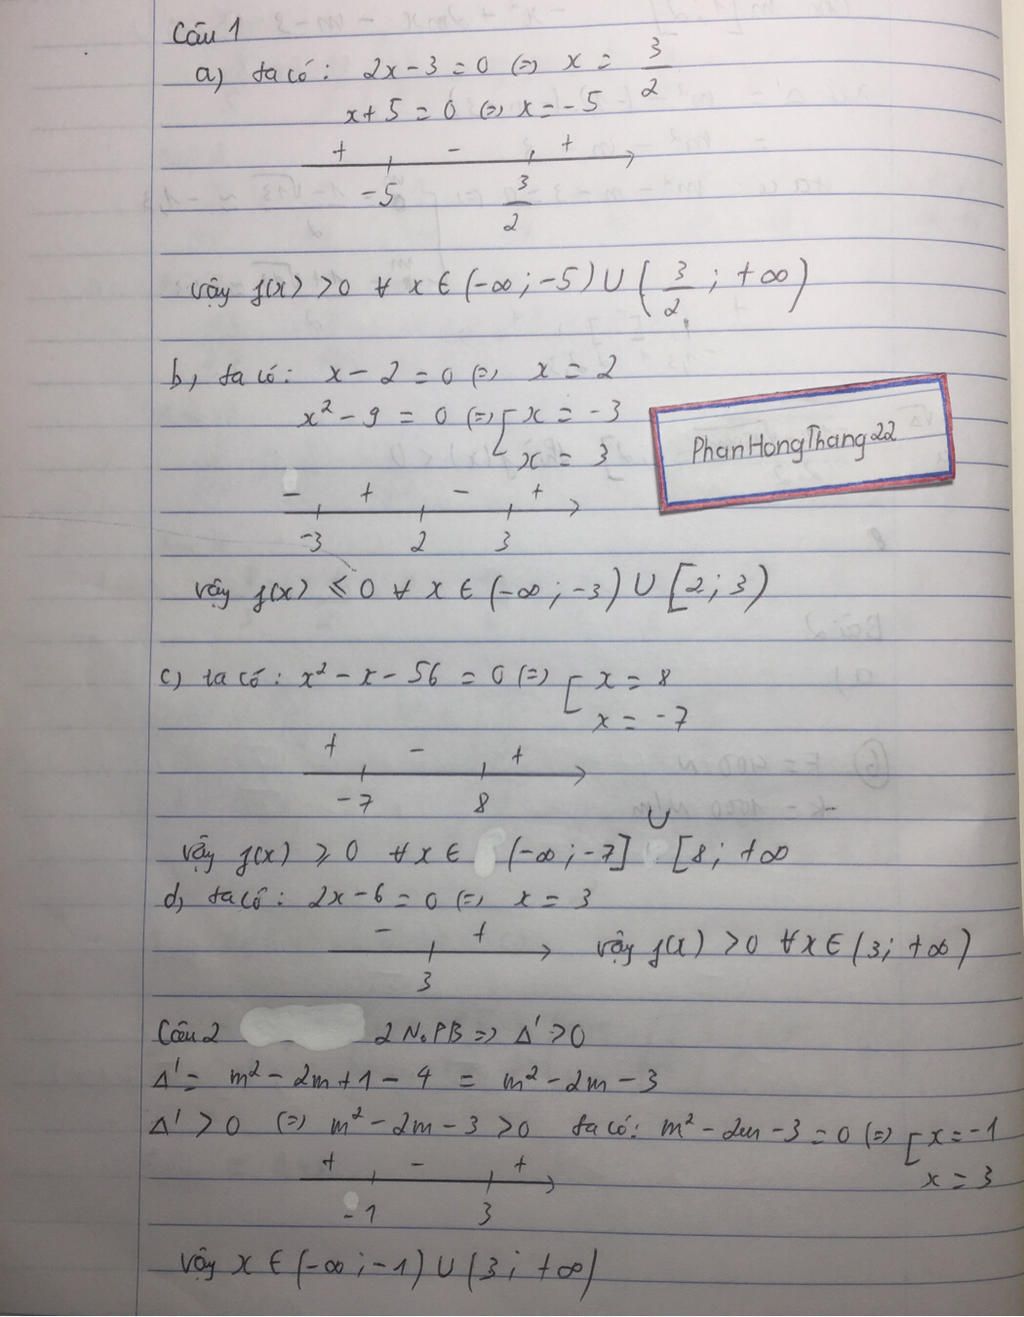 Câu 1
a) ta có: 2x - 3 = 0 (=) x = 3/2
x + 5 = 0 (=) x = -5
+ - +
-5 3/2
vậy f(x) > 0 ∀ x ∈ (-∞; -5) ∪ (3/2; +∞)
b, ta có: x - 2 = 0 (=) x = 2
x² - 9 = 0 (=) [ x = -3
x = 3
PhanHongThang22
- + - +
-3 2 3
vậy f(x) ≤ 0 ∀ x ∈ (-∞; -3) ∪ [2; 3)
c) ta có: x² - x - 56 = 0 (=) [ x = 8
x = -7
+ - +
-7 8
vậy f(x) ≥ 0 ∀ x ∈ (-∞; -7] ∪ [8; +∞
d, ta có: 2x - 6 = 0 (=) x = 3
- +
3
vậy f(x) > 0 ∀ x ∈ (3; +∞)
Câu 2 2 No PB => Δ' > 0
Δ' = m² - 2m + 1 - 4 = m² - 2m - 3
Δ' > 0 (=) m² - 2m - 3 > 0 ta có: m² - 2m - 3 = 0 (=) [ x = -1
x = 3
+ - +
-1 3
vậy x ∈ (-∞; -1) ∪ (3; +∞)